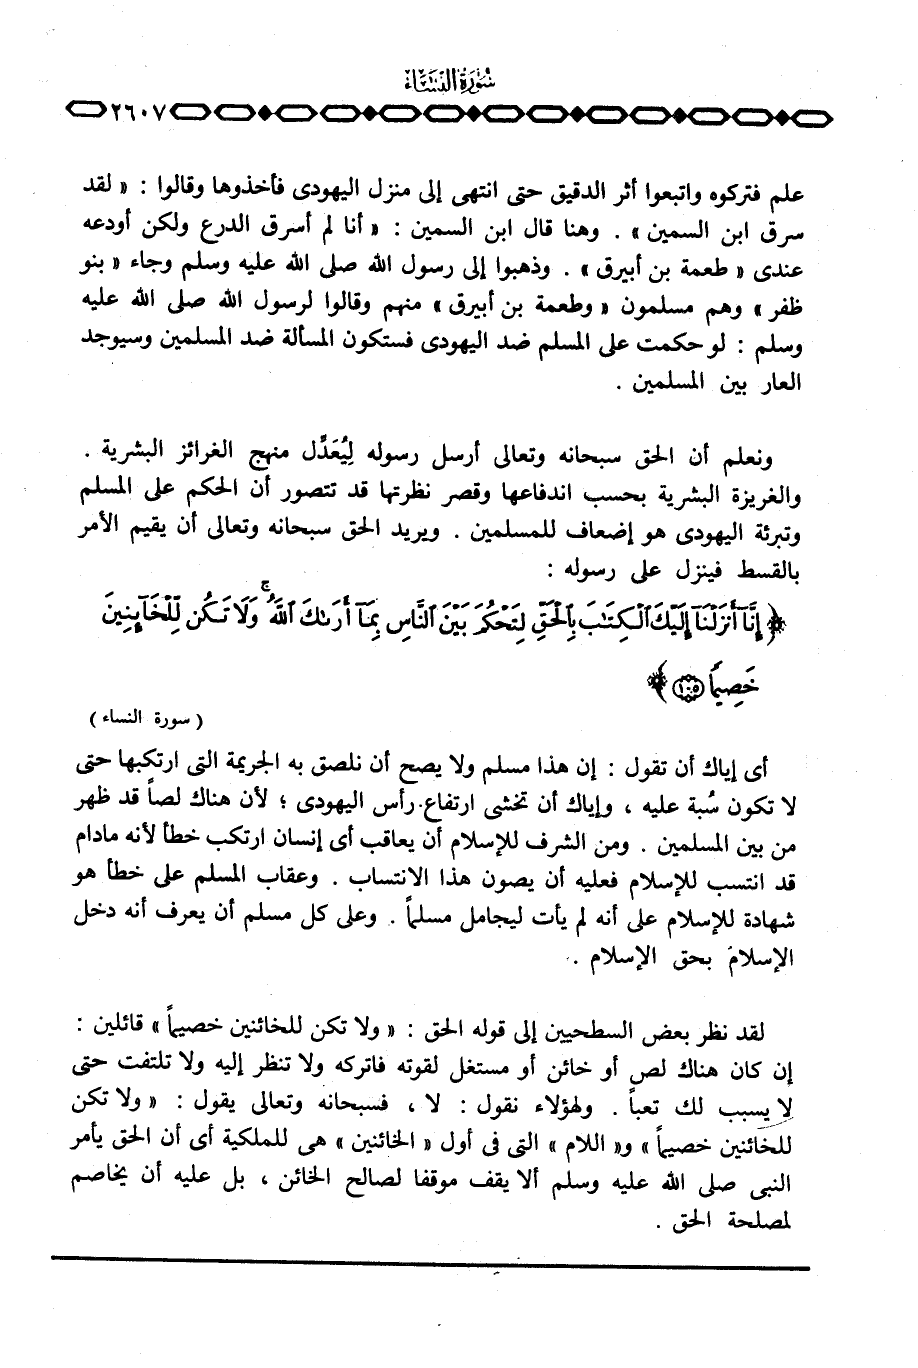 سُورَةُ النِّسَاءِ
٢٦٠٧
علم فتركوه واتبعوا أثر الدقيق حتى انتهى إلى منزل اليهودى فأخذوها وقالوا : « لقد
سرق ابن السمين » . وهنا قال ابن السمين : « أنا لم أسرق الدرع ولكن أودعه
عندى « طعمة بن أبيرق » . وذهبوا إلى رسول الله صلى الله عليه وسلم وجاء « بنو
ظفر » وهم مسلمون « وطعمة بن أبيرق » منهم وقالوا لرسول الله صلى الله عليه
وسلم : لو حكمت على المسلم ضد اليهودى فستكون المسألة ضد المسلمين وسيوجد
العار بين المسلمين .
ونعلم أن الحق سبحانه وتعالى أرسل رسوله لِيُعَدِّل منهج الغرائز البشرية .
والغريزة البشرية بحسب اندفاعها وقصر نظرتها قد تتصور أن الحكم على المسلم
وتبرئة اليهودى هو إضعاف للمسلمين . ويريد الحق سبحانه وتعالى أن يقيم الأمر
بالقسط فينزل على رسوله :
﴿ إِنَّآ أَنزَلْنَآ إِلَيْكَ ٱلْكِتَٰبَ بِٱلْحَقِّ لِتَحْكُمَ بَيْنَ ٱلنَّاسِ بِمَآ أَرَىٰكَ ٱللَّهُ ۚ وَلَا تَكُن لِّلْخَآئِنِينَ
خَصِيمًا ١٠٥ ﴾
( سورة النساء )
أى إياك أن تقول : إن هذا مسلم ولا يصح أن نلصق به الجريمة التى ارتكبها حتى
لا تكون سُبة عليه ، وإياك أن تخشى ارتفاع رأس اليهودى ؛ لأن هناك لصاً قد ظهر
من بين المسلمين . ومن الشرف للإسلام أن يعاقب أى إنسان ارتكب خطأ لأنه مادام
قد انتسب للإسلام فعليه أن يصون هذا الانتساب . وعقاب المسلم على خطأ هو
شهادة للإسلام على أنه لم يأت ليجامل مسلماً . وعلى كل مسلم أن يعرف أنه دخل
الإسلامَ بحق الإسلام .
لقد نظر بعض السطحيين إلى قوله الحق : « ولا تكن للخائنين خصيماً » قائلين :
إن كان هناك لص أو خائن أو مستغل لقوته فاتركه ولا تنظر إليه ولا تلتفت حتى
لا يسبب لك تعباً . ولهؤلاء نقول : لا ، فسبحانه وتعالى يقول : « ولا تكن
للخائنين خصيماً » و« اللام » التى فى أول « الخائنين » هى للملكية أى أن الحق يأمر
النبى صلى الله عليه وسلم ألا يقف موقفا لصالح الخائن ، بل عليه أن يخاصم
لمصلحة الحق .